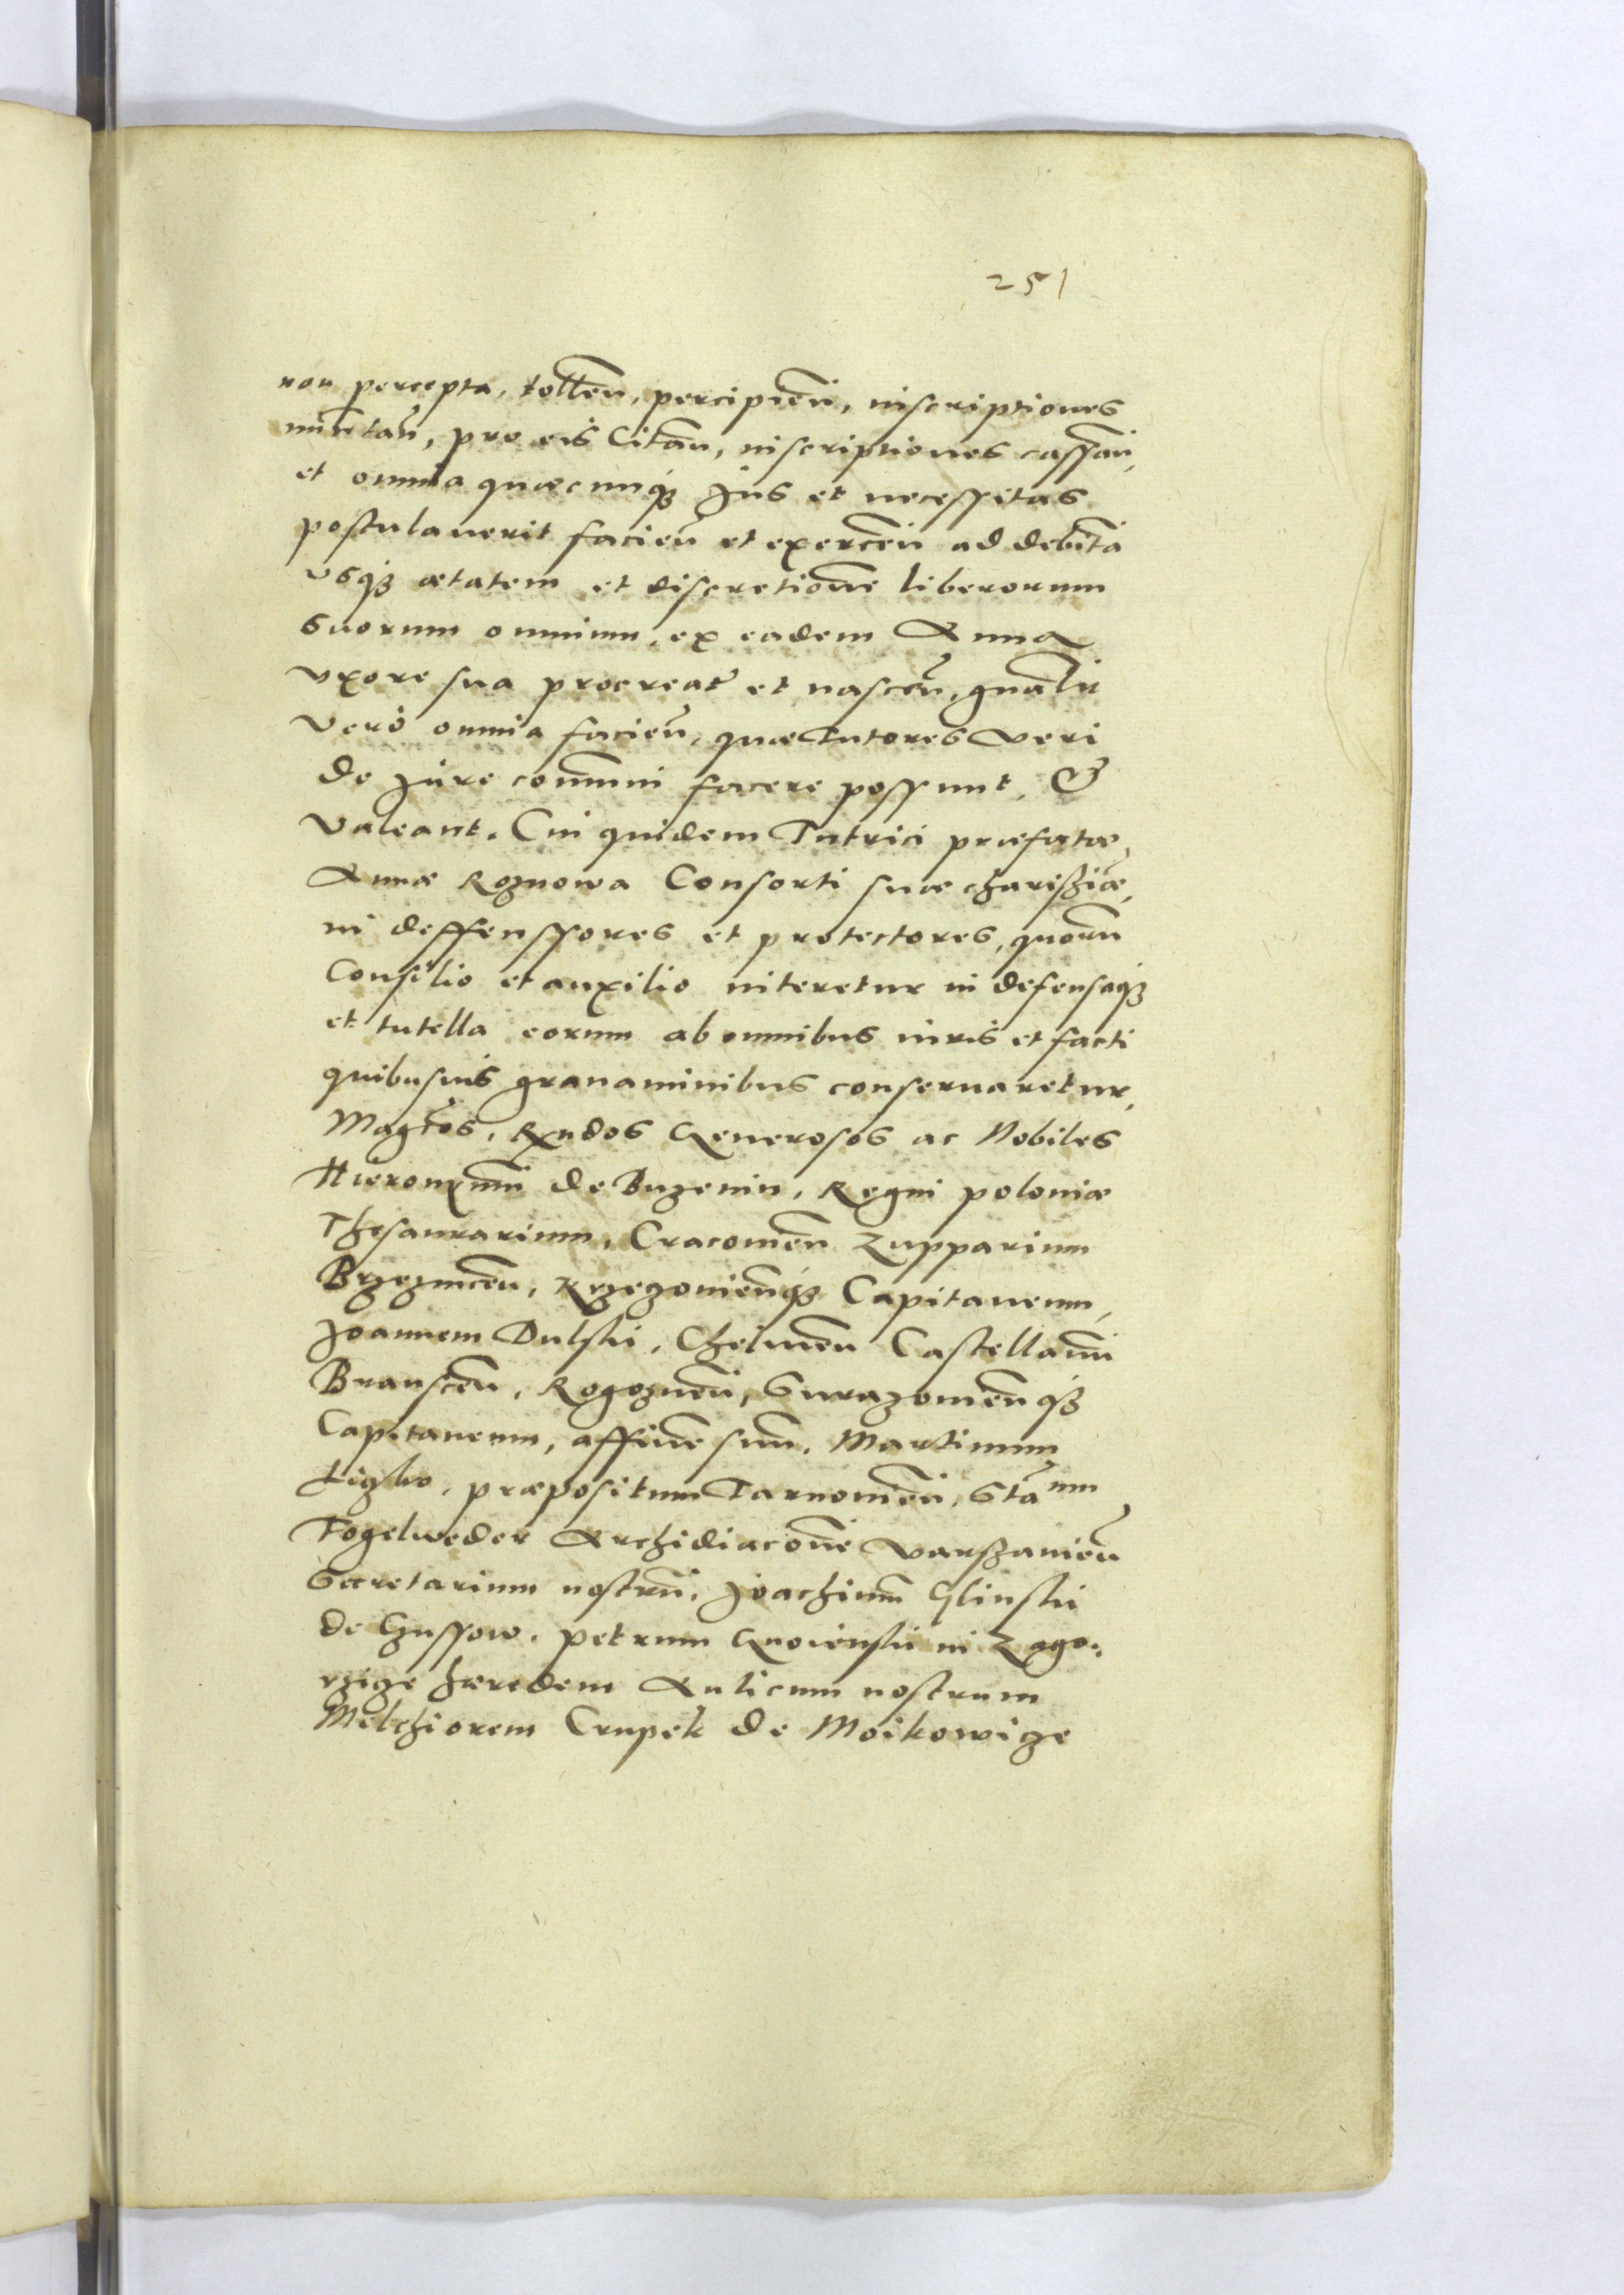 251
non percepta, tollen, percipien, inscriptiones
pro eis Citan, inscriptiones cassan,
et omnia quæcunq3 Jus et necessitas
postulauerit facien et exercen ad debita
vsq3 ætatem et discretione liberorum
suorum omnium, ex eadem Anna
vxore sua procreat et nascen, gnalit
verò omnia facien, quæ Tutores veri
de Jure comuni facere possunt, &
valeant. Cui quidem Tutrici præfatæ,
Annæ Roznowa Consorti suæ charissiæ,
in deffenssores et protectores, quoru
Consilio et auxilio niteretur in defensaq3
et tutella eorum ab omnibus iuris et facti
quibusuis grauaminibus conseruaretur,
Magcos, Rndos Generosos ac Nobiles
Hieronymu de Buzenin, Regni poloniæ
Thesaurarium, Cracouien Zupparium
Brzeznicen, Krzezouienq3 Capitaneum,
Joannem Dulski, Chelmen Castellanu
Branscen, Rogoznen, Surazouienq3
Capitaneum, affine suu. Martinum
præpositum Tarnouien, Sta num
Fogelweder Archidiacone Varssauien
Secretarium nostru, Joachimu Glinski
de petrum Gnoienski in Zago.
rzicze hæredem Aulicum nostrum
Melchiorem Crupek de Moikowicze